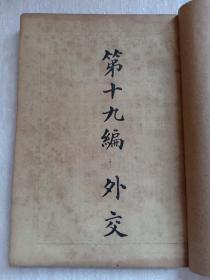 第十九編 外交